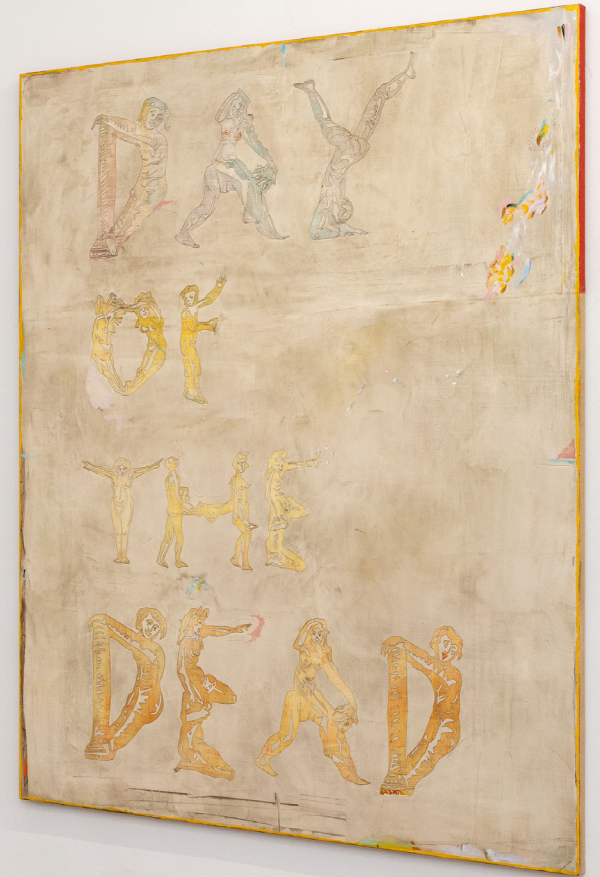 DAY
OF
THE
DEAD